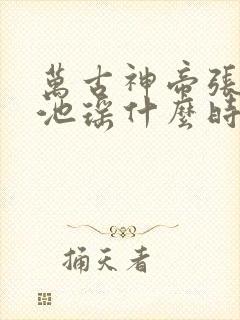 萬古神帝張
池瑤什麼時
捅天者